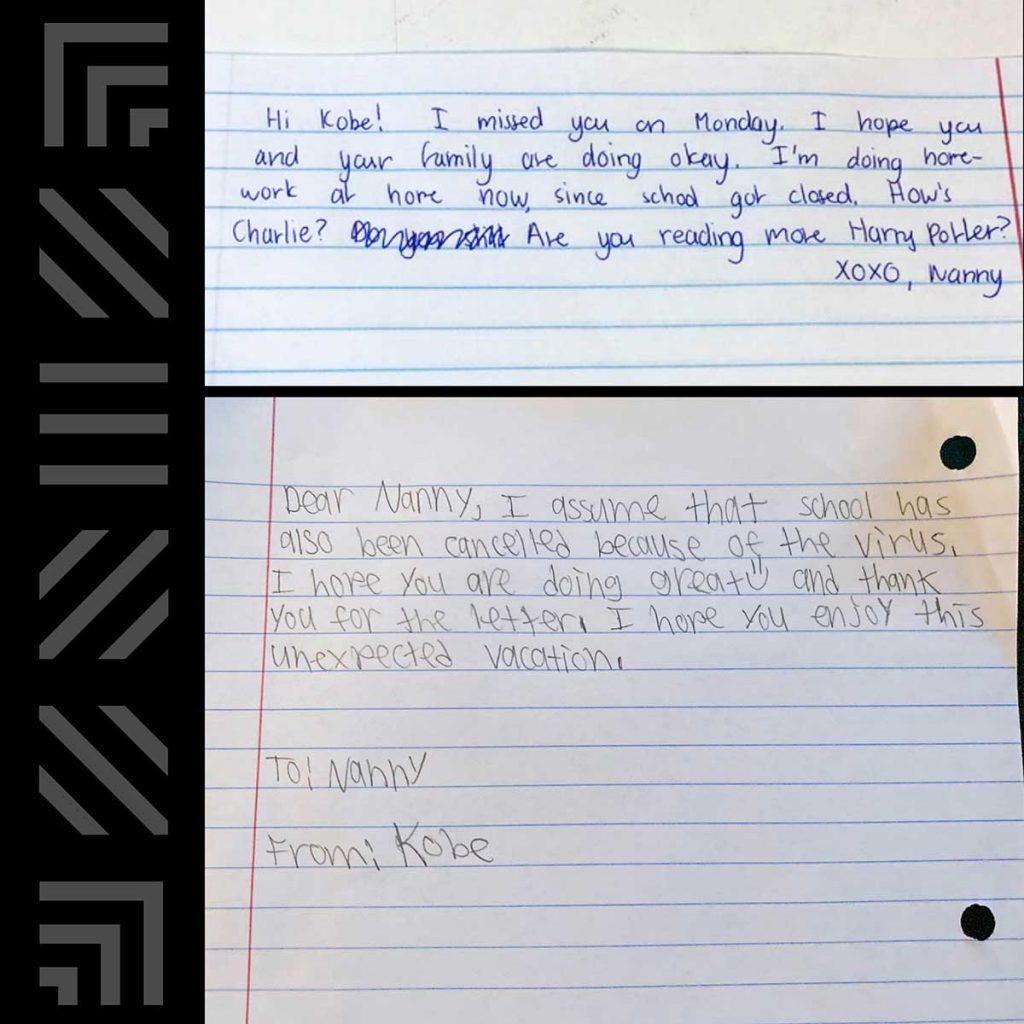 Hi Kobe! I missed you on Monday. I hope you
and your family are doing okay. I'm doing home-
work at home now, since school got closed. How's
Charlie? Are you reading more Harry Potter?
XOXO, Nanny
Dear Nanny, I assume that school has
also been cancelled because of the virus.
I hope you are doing great and thank
you for the letter. I hope you enjoy this
unexpected vacation.
To: Nanny
From: Kobe